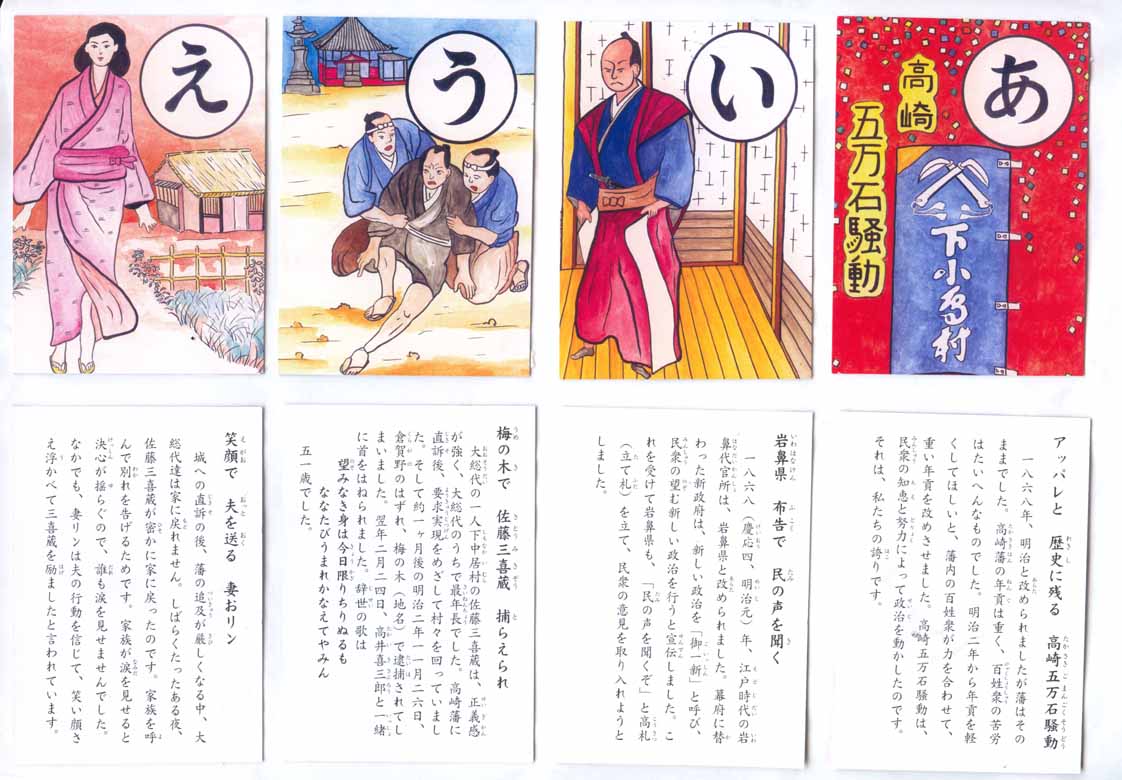 あ
高崎
五万石騒動
下小鳥村
い
う
え
アッパレと　歴史に残る　高崎五万石騒動
一八六八年、明治と改められましたが藩はその
ままでした。高崎藩の年貢は重く、百姓衆の苦労
はたいへんなものでした。明治二年から年貢を軽
くしてほしいと、藩内の百姓衆が力を合わせて、
重い年貢を改めさせました。高崎五万石騒動は、
民衆の知恵と努力によって政治を動かしたのです。
それは、私たちの誇りです。
岩鼻県　布告で　民の声を聞く
一八六八（慶応四、明治元）年、江戸時代の岩
鼻代官所は、岩鼻県と改められました。幕府に替
わった新政府は、新しい政治を「御一新」と呼び、
民衆の望む新しい政治を行うと宣伝しました。こ
れを受けて岩鼻県も、「民の声を聞くぞ」と高札
（立て札）を立て、民衆の意見を取り入れようと
しました。
梅の木で　佐藤三喜蔵　捕らえられ
大総代の一人下中居村の佐藤三喜蔵は、正義感
が強く、大総代のうちで最年長でした。高崎藩に
直訴後、要求実現をめざして村々を回っていまし
た。そして約一ヶ月後の明治二年一一月二六日、
倉賀野のはずれ、梅の木（地名）で逮捕されてし
まいました。翌年二月二四日、高井喜三郎と一緒
に首をはねられました。辞世の歌は
望みなき身は今日限りちりぬるも
ななたびうまれかなえてやみん
五一歳でした。
笑顔で　夫を送る　妻おリン
城への直訴の後、藩の追及が厳しくなる中、大
総代達は家に戻れません。しばらくたったある夜、
佐藤三喜蔵が密かに家に戻ったのです。家族を呼
んで別れを告げるためです。家族が涙を見せると
決心が揺らぐので、誰も涙を見せませんでした。
なかでも、妻リンは夫の行動を信じて、笑い顔さ
え浮かべて三喜蔵を励ましたと言われています。